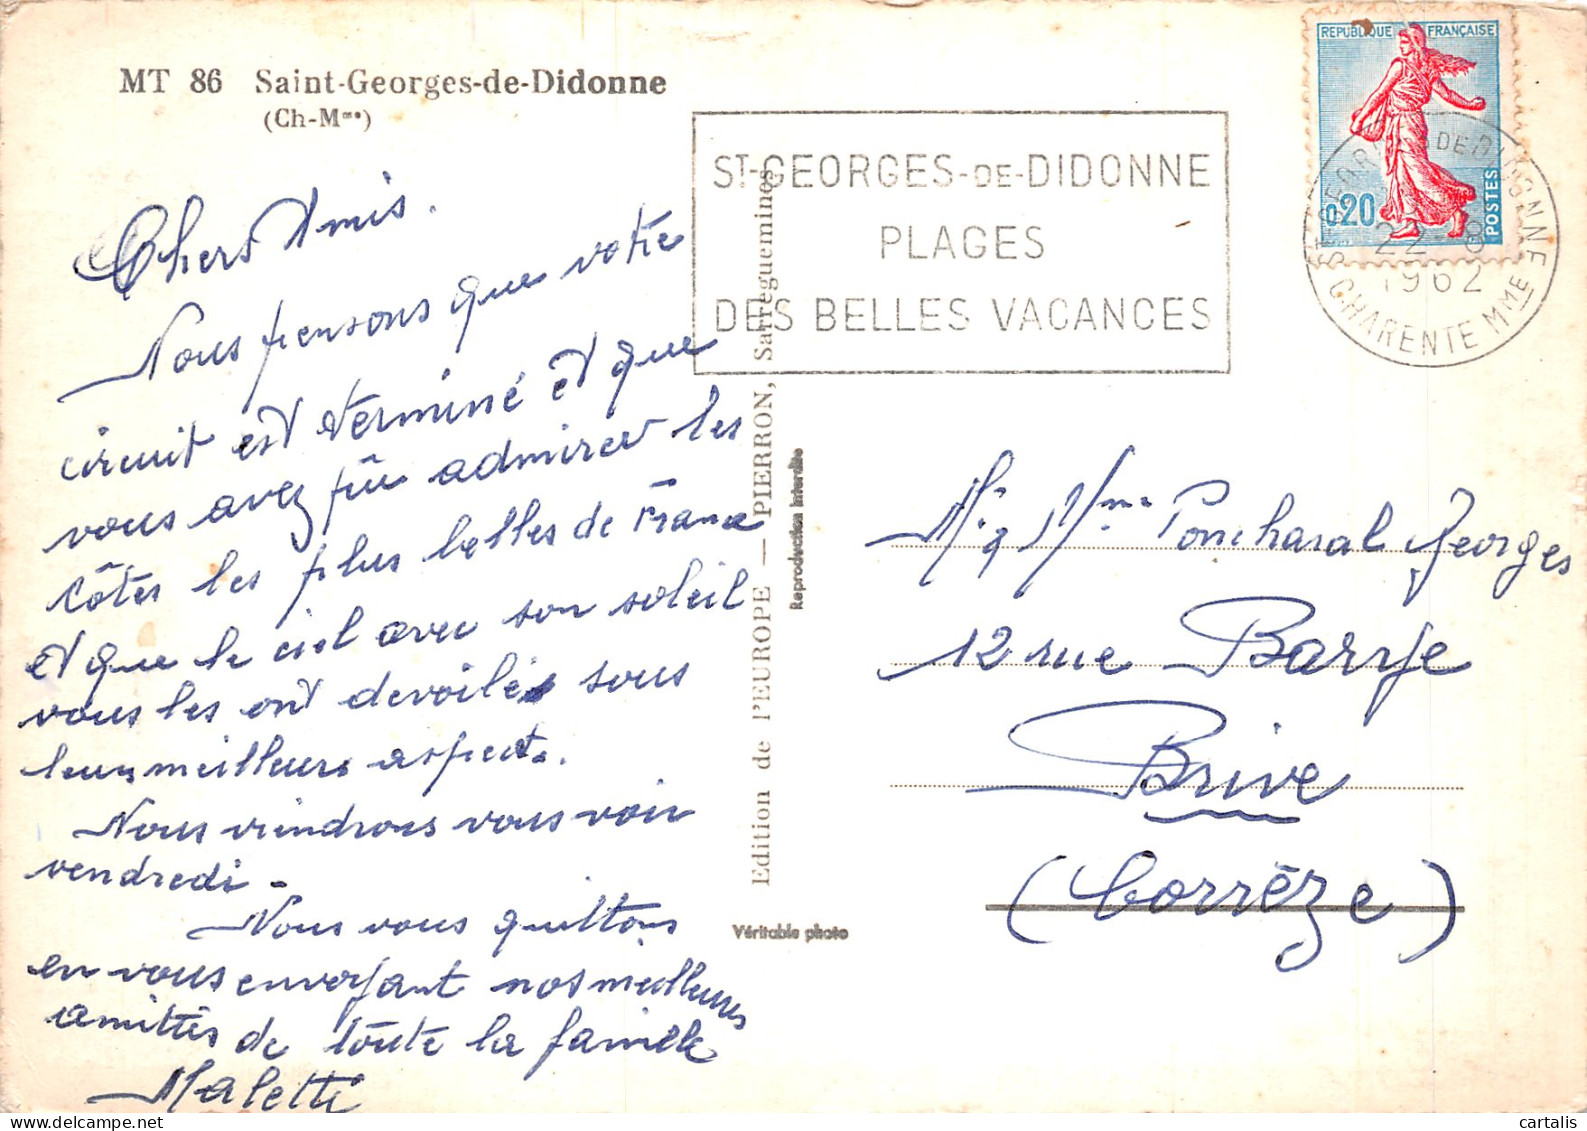 MT 86 Saint-Georges-de-Didonne
(Ch-Mme)
Chers Amis.
Nous pensons que votre
circuit est terminé et que
vous avez pû admirer les
côtes les plus belles de France
et que le ciel avec son soleil
vous les ont devoilés sous
leurs meilleurs aspects.
Nous viendrons vous voir
vendredi.
Nous vous quittons
en vous envoyant nos meilleures
amitiés de toute la famille
Maletti
Edition de l'EUROPE — PIERRON, Sarreguemines
Reproduction interdite
Véritable photo
ST-GEORGES-DE-DIDONNE
PLAGES
DES BELLES VACANCES
REPUBLIQUE FRANÇAISE
0,20
POSTES
ST GEORGES DE DIDONNE
22-8
1962
CHARENTE MME
Mr & Mme Poncharal Georges
12 rue Barrye
Brive
(Corrèze)
cartalis
www.delcampe.net